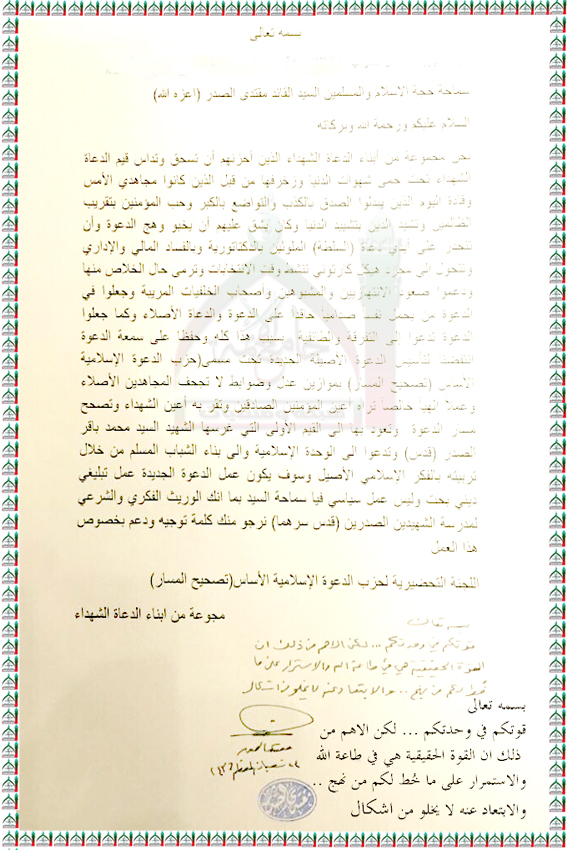 بسمه تعالى
سماحة حجة الاسلام والمسلمين السيد القائد مقتدى الصدر (اعزه الله)
السلام عليكم ورحمة الله وبركاته
نحن مجموعة من أبناء الدعاة الشهداء الذين أحزنهم أن تسحق وتداس قيم الدعاة
الشهداء تحت حمى شهوات الدنيا وزخرفها من قبل الذين كانوا مجاهدي الأمس
وقادة اليوم الذين يبدلوا الصدق بالكذب والتواضع بالكبر وحب المؤمنين بتقريب
الظالمين وتشيد الدين بتشييد الدنيا وكان يشق عليهم أن يخبو وهج الدعوة وأن
على دعاة (السلطة) الملوثين بالدكتاتورية وبالفساد المالي والإداري
وتتحول الى مجرد هيكل كارتوني تنشط وقت الانتخابات وترمى حال الخلاص منها
ودعموا صعود الانتهازيين واصحاب الخلفيات المريبة وجعلوا في
الدعوة من يحمل نفسا صداميا على الدعوة والدعاة الأصلاء وكما جعلوا
الدعوة تدعوا الى التفرقة والطائفية بسبب هذا كله وحفظا على سمعة الدعوة
لتأسيس الدعوة الأصيلة الجديدة تحت مسمى(حزب الدعوة الإسلامية
الأساس (تصحيح المسار) بموازين عدل وضوابط لا تجحف المجاهدين الأصلاء
وعملا الهيا خالصا تراه أعين المؤمنين الصادقين وتقر به أعين الشهداء وتصحح
مسار الدعوة وتعود بها الى القيم الأولى التي غرسها الشهيد السيد محمد باقر
الصدر (قدس) وتدعوا الى الوحدة الإسلامية والى بناء الشباب المسلم من خلال
تربيته بالفكر الإسلامي الأصيل وسوف يكون عمل الدعوة الجديدة عمل تبليغي
ديني بحت وليس عمل سياسي فيا سماحة السيد بما انك الوريث الفكري والشرعي
لمدرسة الشهيدين الصدرين (قدس سرهما) نرجو منك كلمة توجيه ودعم بخصوص
هذا العمل
اللجنة التحضيرية لحزب الدعوة الإسلامية الأساس(تصحيح المسار)
مجوعة من ابناء الدعاة الشهداء
بسمه تعالى
قوتكم في وحدتكم ... لكن الاهم من ذلك ان
القوة الحقيقية هي في طاعة الله والاستمرار على ما
خُط لكم من نهج .. والابتعاد عنه لا يخلو من اشكال
مقتدى الصدر
بسمه تعالى
قوتكم في وحدتكم ... لكن الاهم من
ذلك ان القوة الحقيقية هي في طاعة الله
والاستمرار على ما خُط لكم من نهج ..
والابتعاد عنه لا يخلو من اشكال